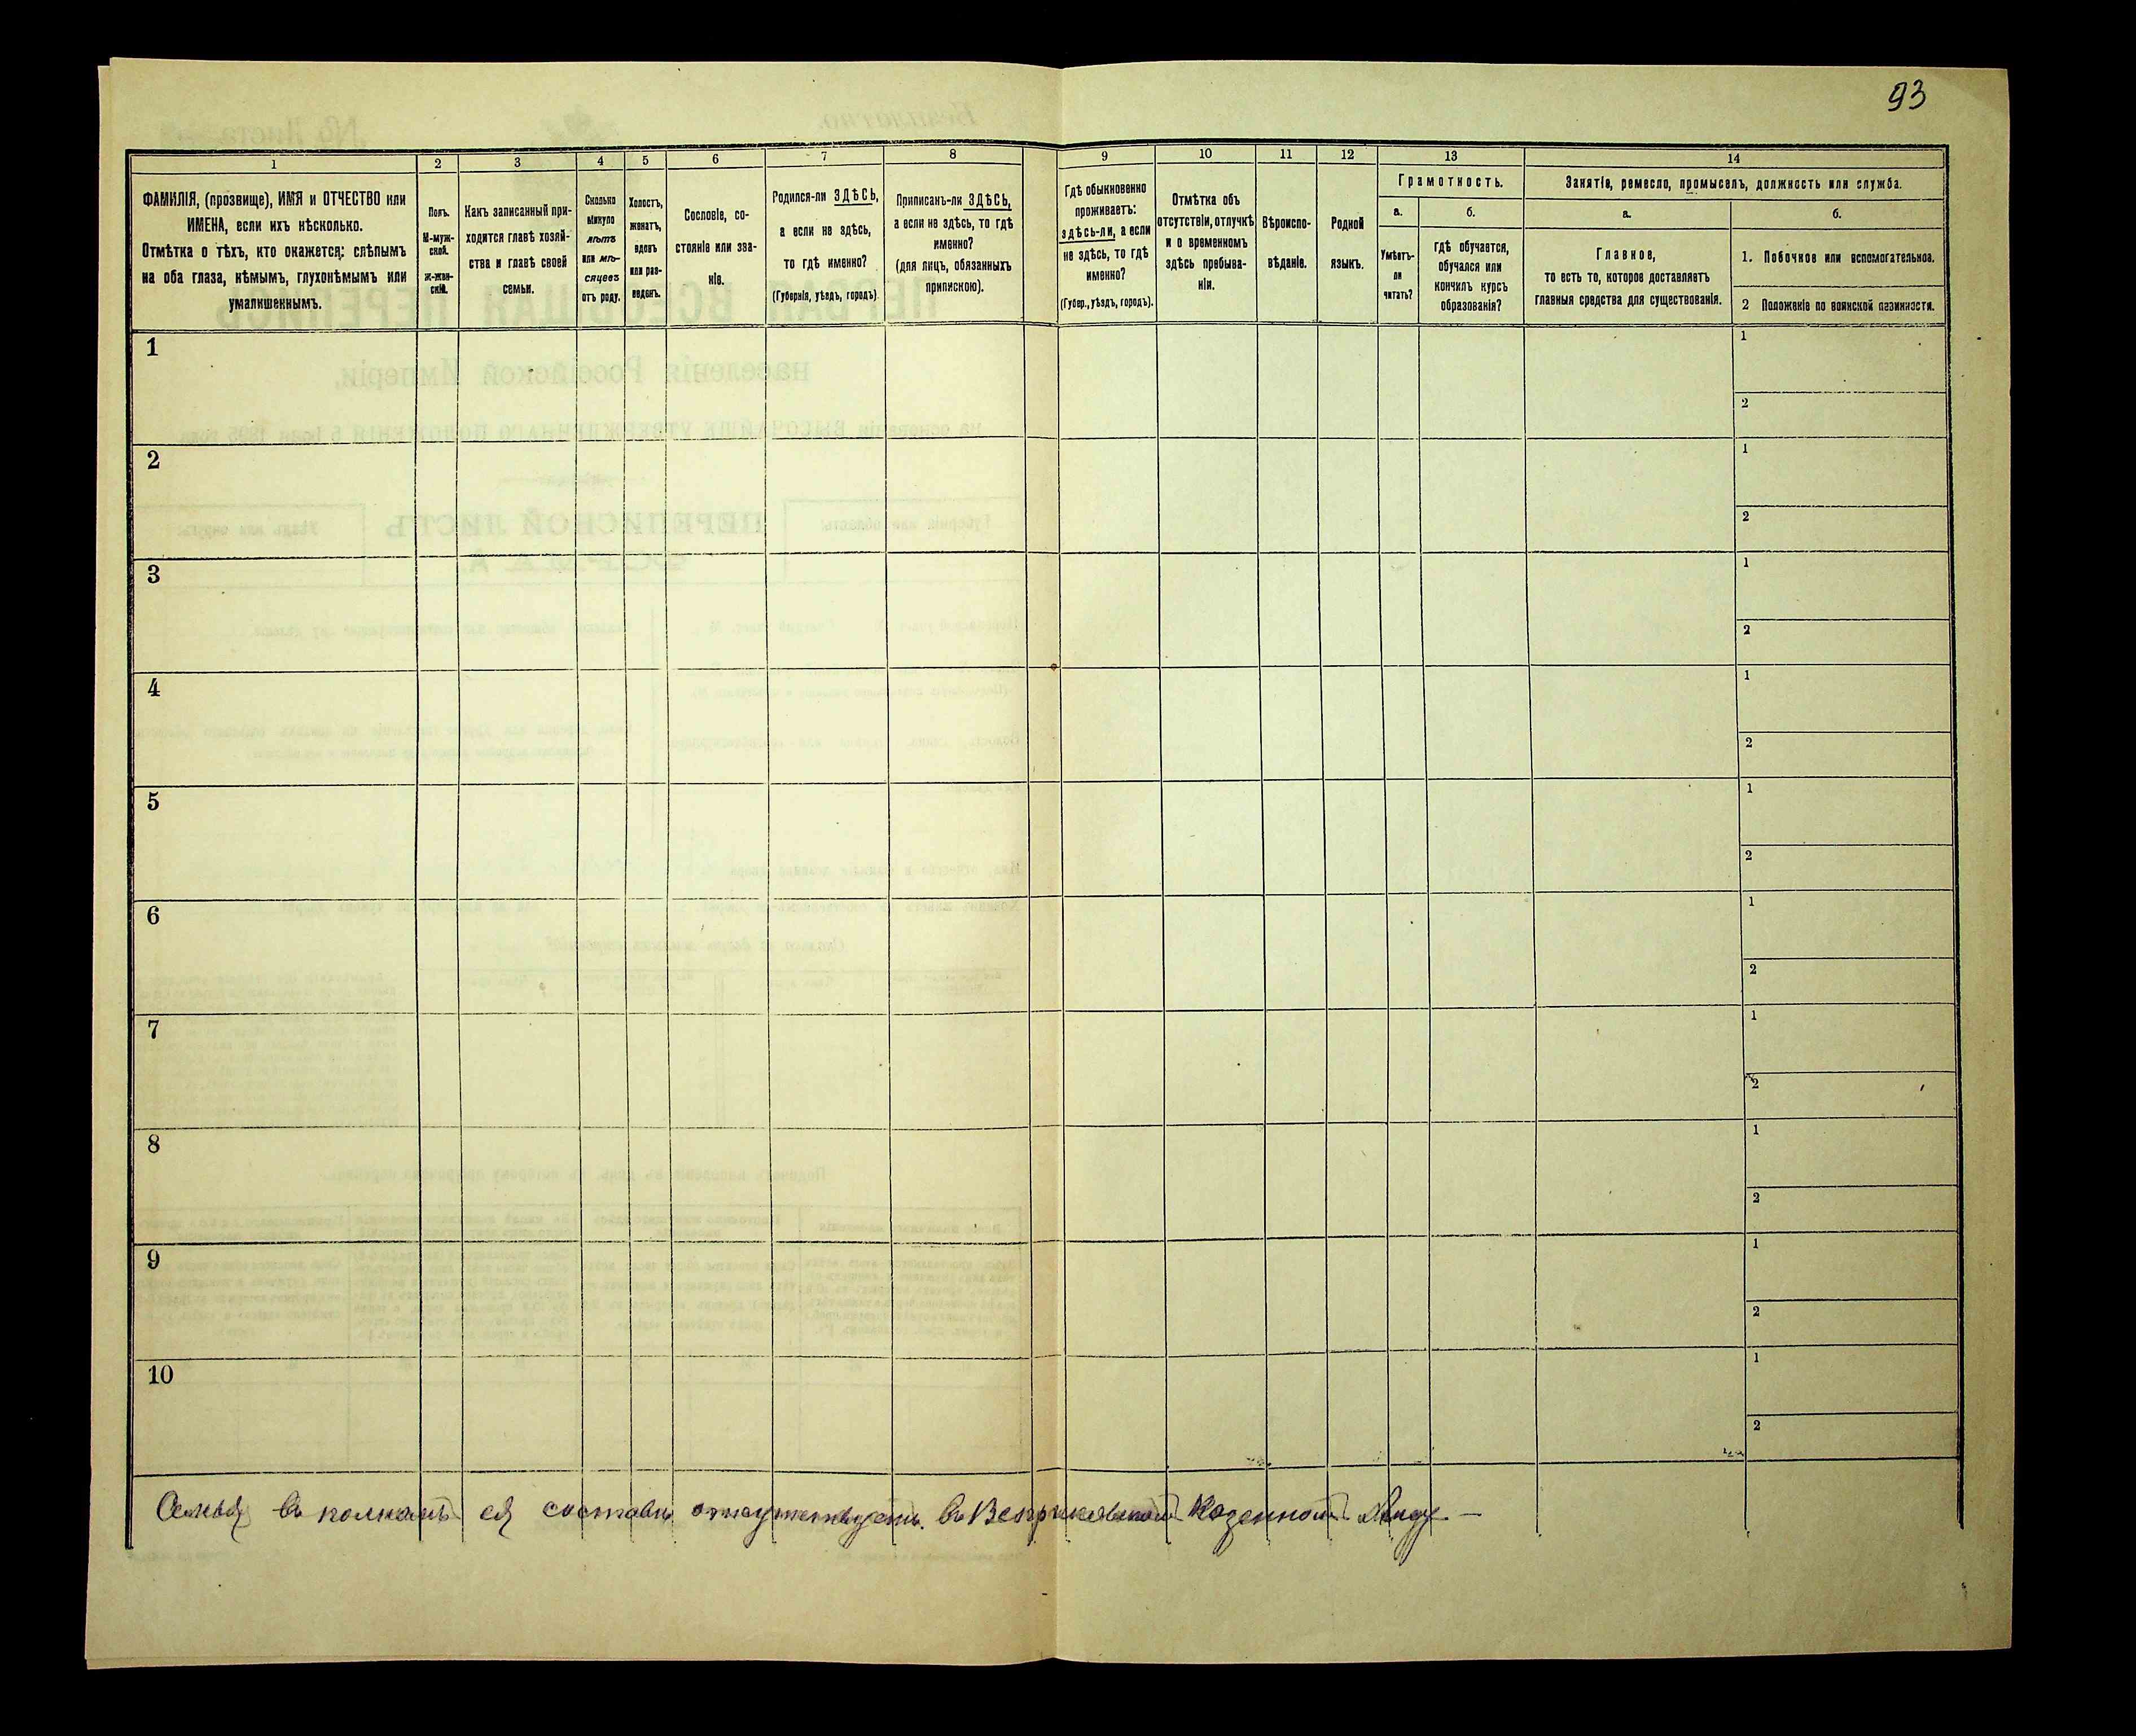 93
1 2 3 4 5 6 7 8 9 10 11 12 13 14
ФАМИЛІЯ, (прозвище), ИМЯ и ОТЧЕСТВО или
ИМЕНА, если ихъ нѣсколько.
Отмѣтка о тѣхъ, кто окажется: слѣпымъ
на оба глаза, нѣмымъ, глухонѣмымъ или
умалишеннымъ.
Полъ.
М-муж-
ской.
ж-жен-
скій.
Какъ записанный при-
ходится главѣ хозяй-
ства и главѣ своей
семьи.
Сколько
минуло
лѣтъ
или мѣ-
сяцевъ
отъ роду.
Холостъ,
женатъ,
вдовъ
или раз-
веденъ.
Сословіе, со-
стояніе или зва-
ніе.
Родился-ли ЗДѢСЬ,
а если не здѣсь,
то гдѣ именно?
(Губернія, уѣздъ, городъ)
Приписанъ-ли ЗДѢСЬ,
а если не здѣсь, то гдѣ
именно?
(для лицъ, обязанныхъ
припискою).
Гдѣ обыкновенно
проживаетъ:
здѣсь-ли, а если
не здѣсь, то гдѣ
именно?
(Губер., уѣздъ, городъ).
Отмѣтка объ
отсутствіи, отлучкѣ
и о временномъ
здѣсь пребыва-
ніи.
Вѣроиспо-
вѣданіе.
Родной
языкъ.
Грамотность.
а.
Умѣетъ-
ли
читать?
б.
гдѣ обучается,
обучался или
кончилъ курсъ
образованія?
Занятіе, ремесло, промыселъ, должность или служба.
а.
Главное,
то есть то, которое доставляетъ
главныя средства для существованія.
б.
1. Побочное или вспомогательное.
2 Положеніе по воинской повинности.
1
1
2
2
1
2
3
1
2
4
1
2
5
1
2
6
1
2
7
1
2
8
1
2
9
1
2
10
1
2
Семья въ полномъ ея составѣ отсутствуетъ. въ Казенной